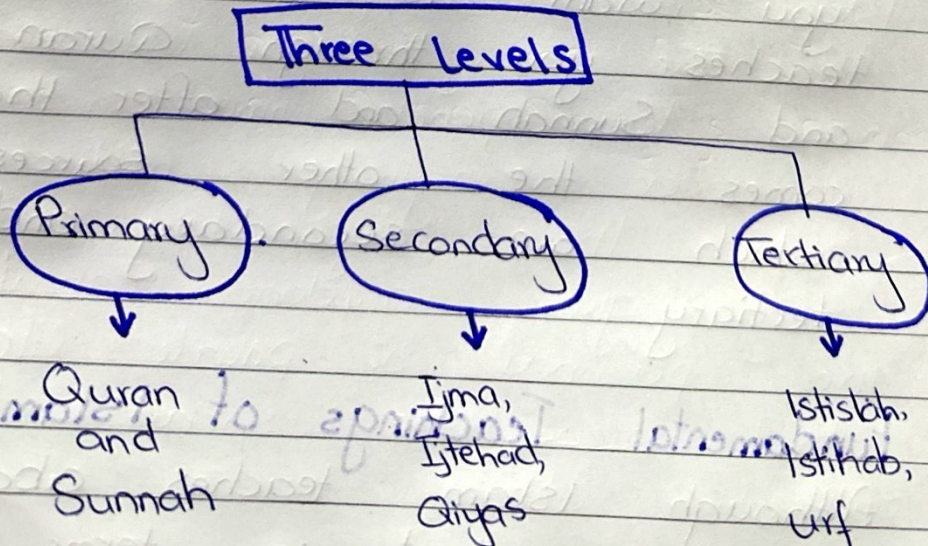 Three Levels
Primary
Secondary
Tertiary
Quran
and
Sunnah
Ijma,
Ijtehad,
Qiyas
Istislah,
Istihab,
urf